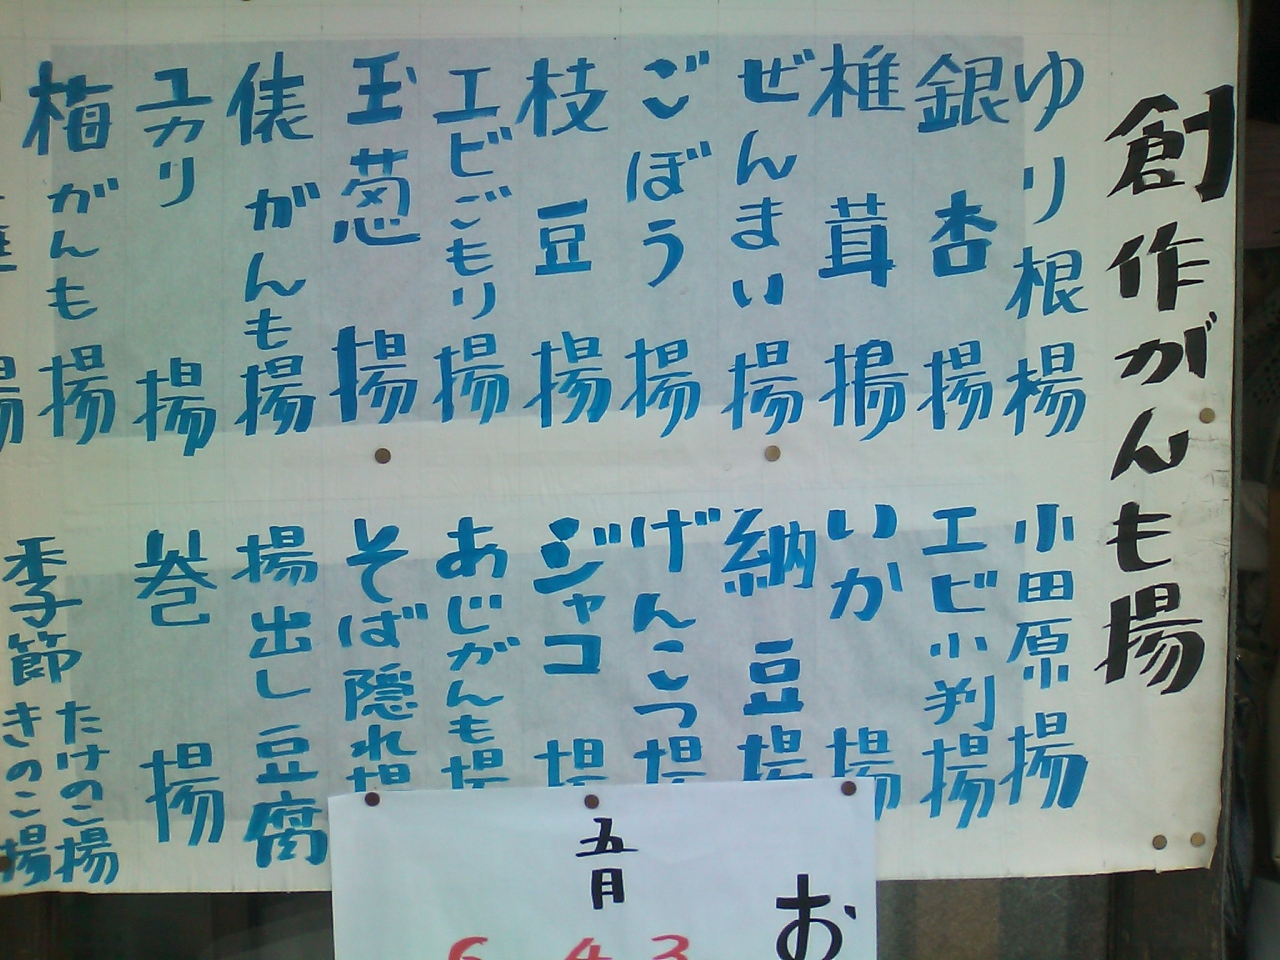 創作がんも揚
ゆり根揚
銀杏揚
椎茸揚
ぜんまい揚
ごぼう揚
枝豆揚
エビごもり揚
玉葱揚
俵がんも揚
ユカリ揚
梅がんも揚
揚
小田原揚
エビ小判揚
いか揚
納豆揚
げんこつ揚
ジャコ揚
あじがんも揚
そば隠れ揚
揚出し豆腐
巻揚
季節たけのこ揚
きのこ揚
お
五月
3
4
6